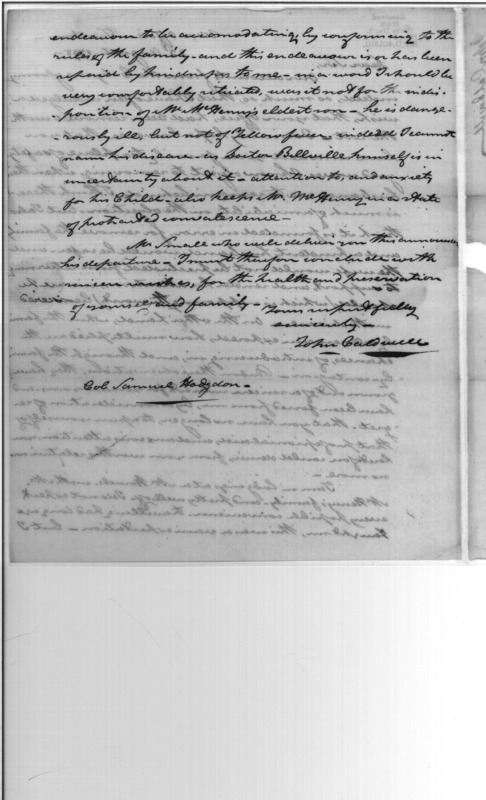 endeavour to be accomodating, by conforming to the
rules of the family - and this endeavour is or has been
repaid by kindness to me - in a word I should be
very comfortably situated, was it not for the indis-
-position of Mr. McHenry's eldest son - he is dange-
-rously ill, but not of Yellow fever - indeed I cannot
name his disease - as Doctor Bellville himself is in
uncertainty about it - attention to, and anxiety
for his Child - also keeps Mr. McHenry in a state
of protracted convalescence -
Mr. Smale who will deliver you this announces
his departure - I must therefore conclude with
sincere wishes, for the health and preservation
of yourself and family -
Yours respectfully
sincerely -
John Caldwell
Col. Samuel Hodgdon -